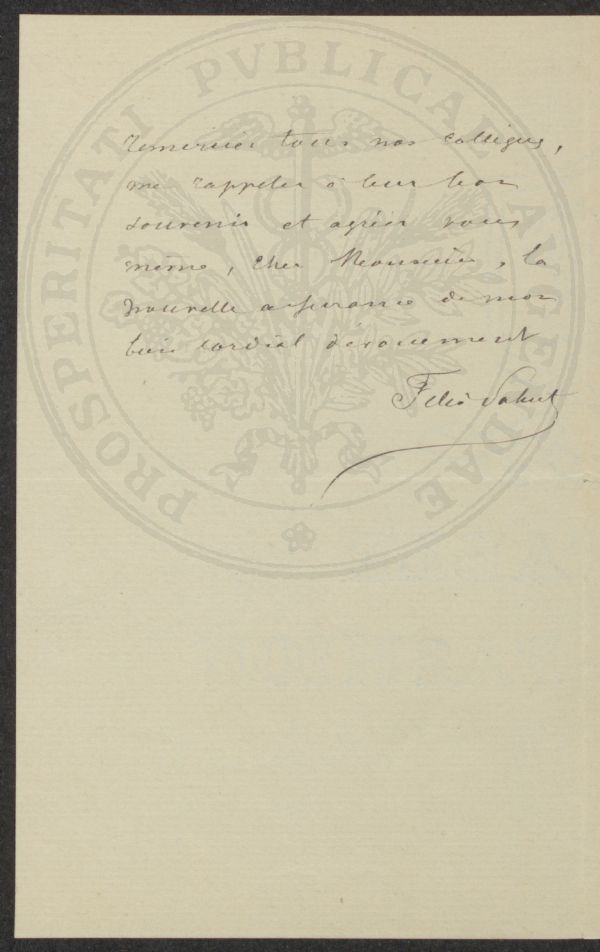 PROSPERITATI PVBLICAE AVGENDAE
remercier tous nos collègues,
me rappeler à leur bon
souvenir et agréer vous
même, cher Monsieur, la
nouvelle assurance de mon
bien cordial dévouement
Félix Sahut